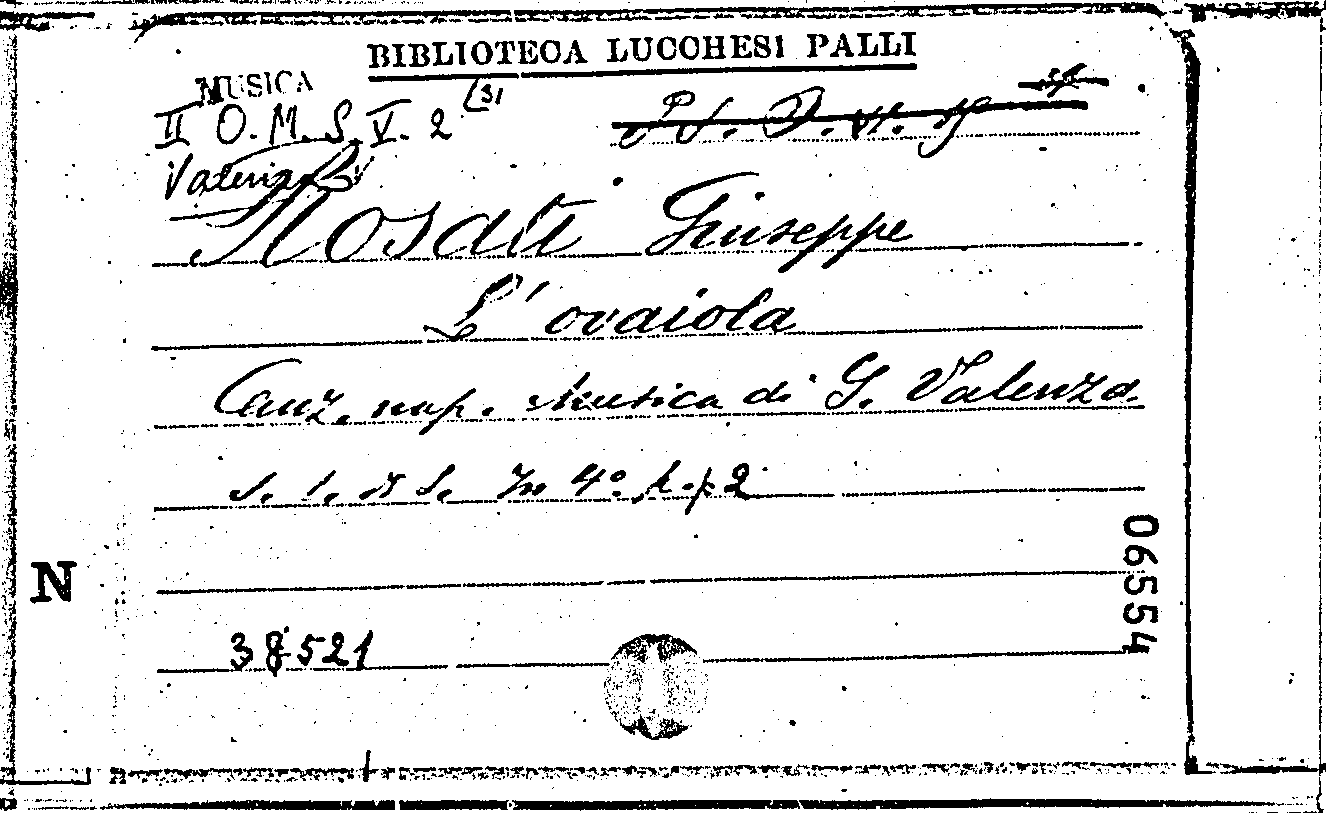 BIBLIOTECA LUCCHESI PALLI
MUSICA
II O. M. S. V. 2 (31
Giuseppe
L' ovaiola
Canz. nap. Musica di G. Valenza
s. l. d. In 4° p. 2
N
38521
06554